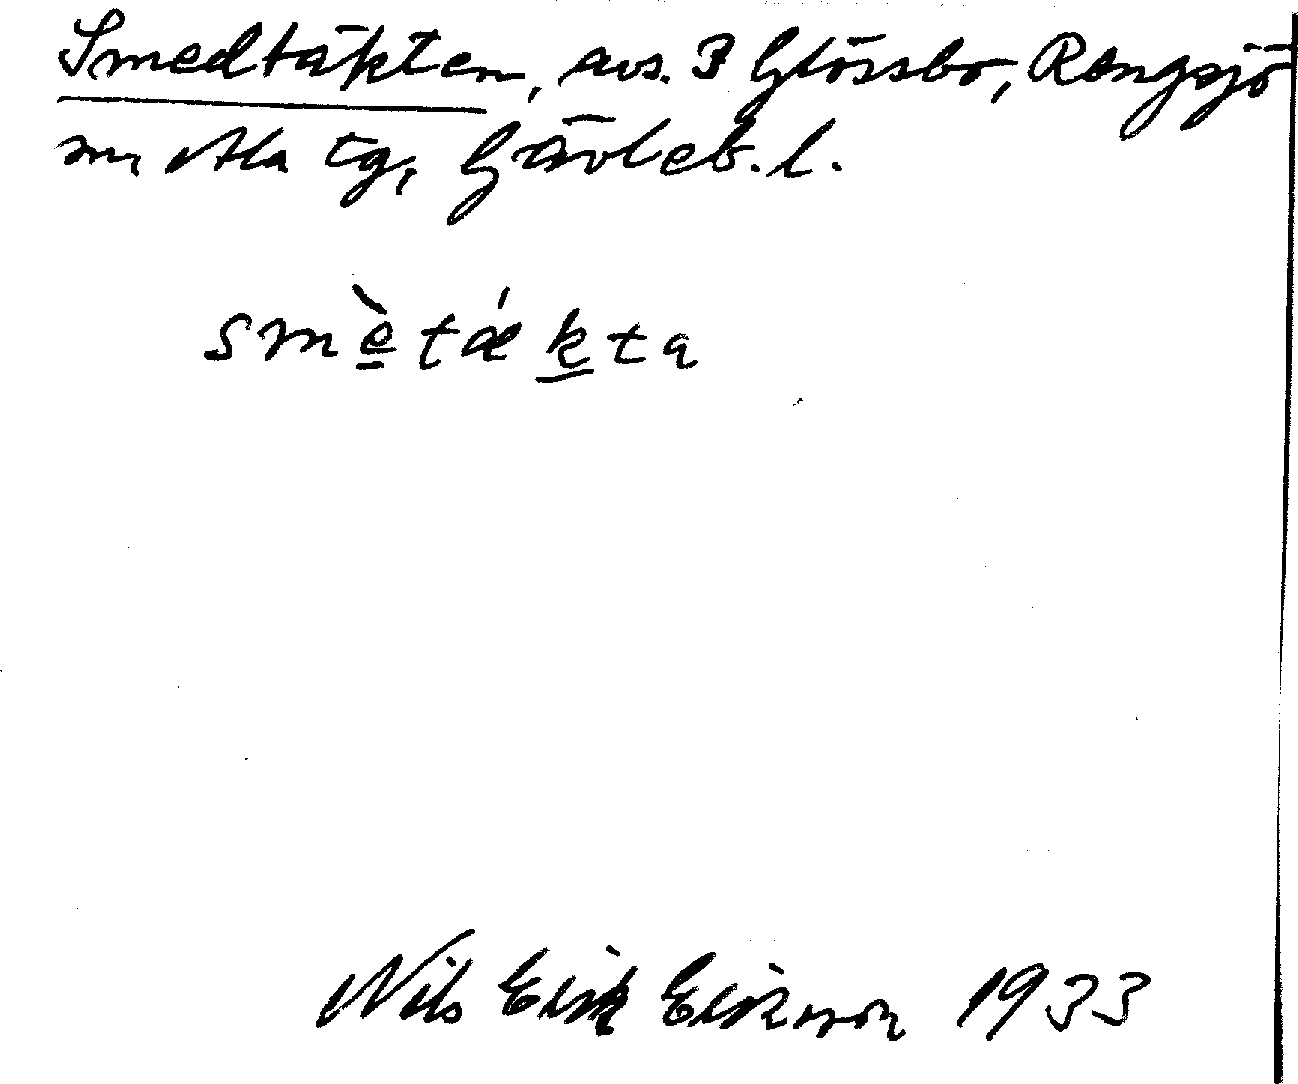 Smedtäkten, avs. 3 Glössbo, Rengsjö
sn, Ala tg, Gävleb. l.
smè̱tǽḵta
Nils Erik Eriksson 1933